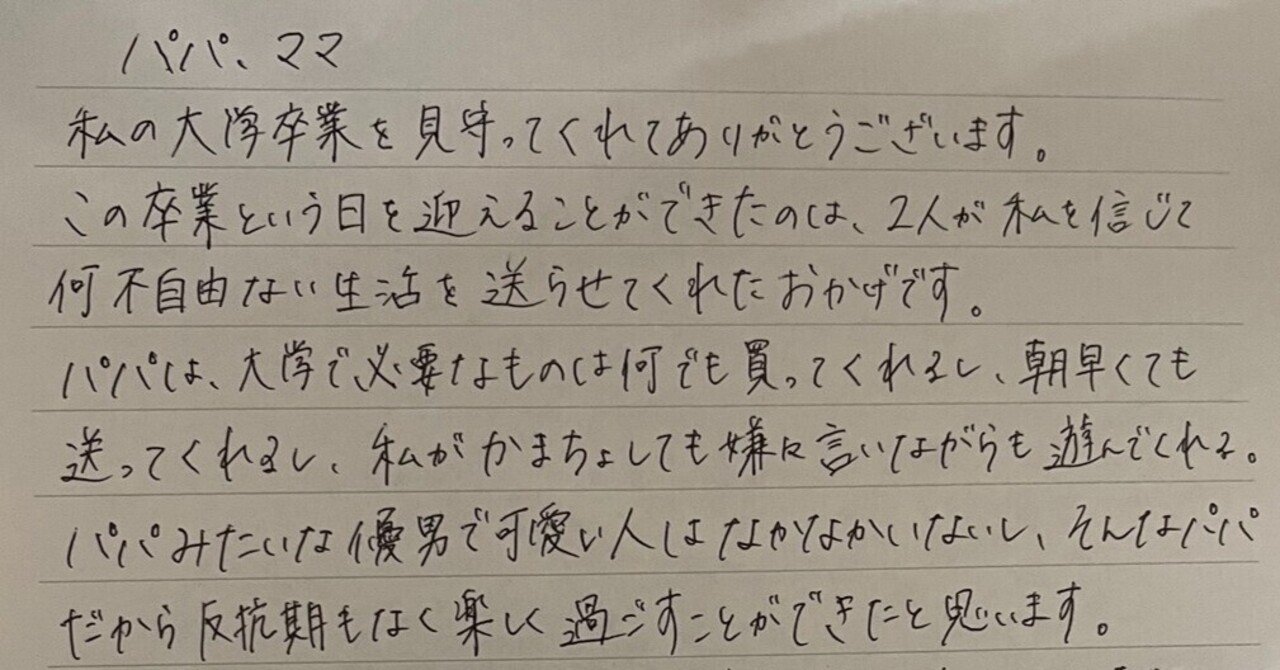 パパ、ママ
私の大学卒業を見守ってくれてありがとうございます。
この卒業という日を迎えることができたのは、2人が私を信じて
何不自由ない生活を送らせてくれたおかげです。
パパは、大学で必要なものは何でも買ってくれるし、朝早くても
送ってくれるし、私がかまちょしても嫌々言いながらも遊んでくれる。
パパみたいな優男で可愛い人はなかなかいないし、そんなパパ
だから反抗期もなく楽しく過ごすことができたと思います。